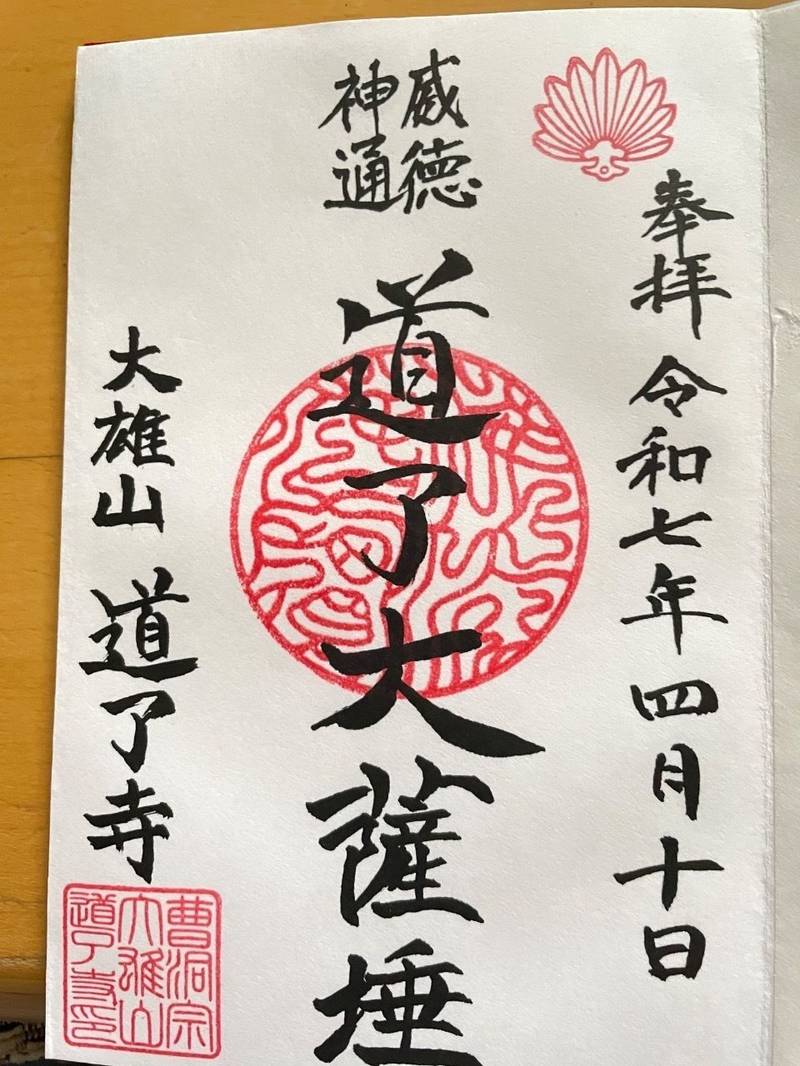 奉拝 令和七年四月十日
威徳
神通
道了大薩埵
大雄山 道了寺
曹洞宗
大雄山
道了寺印